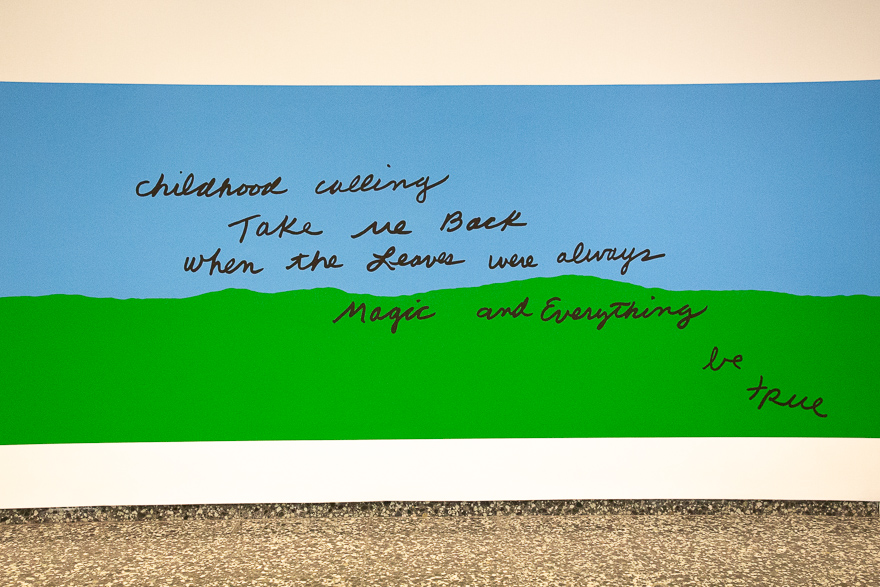 childhood calling
Take me Back
when the Leaves were always
Magic and Everything
be
true